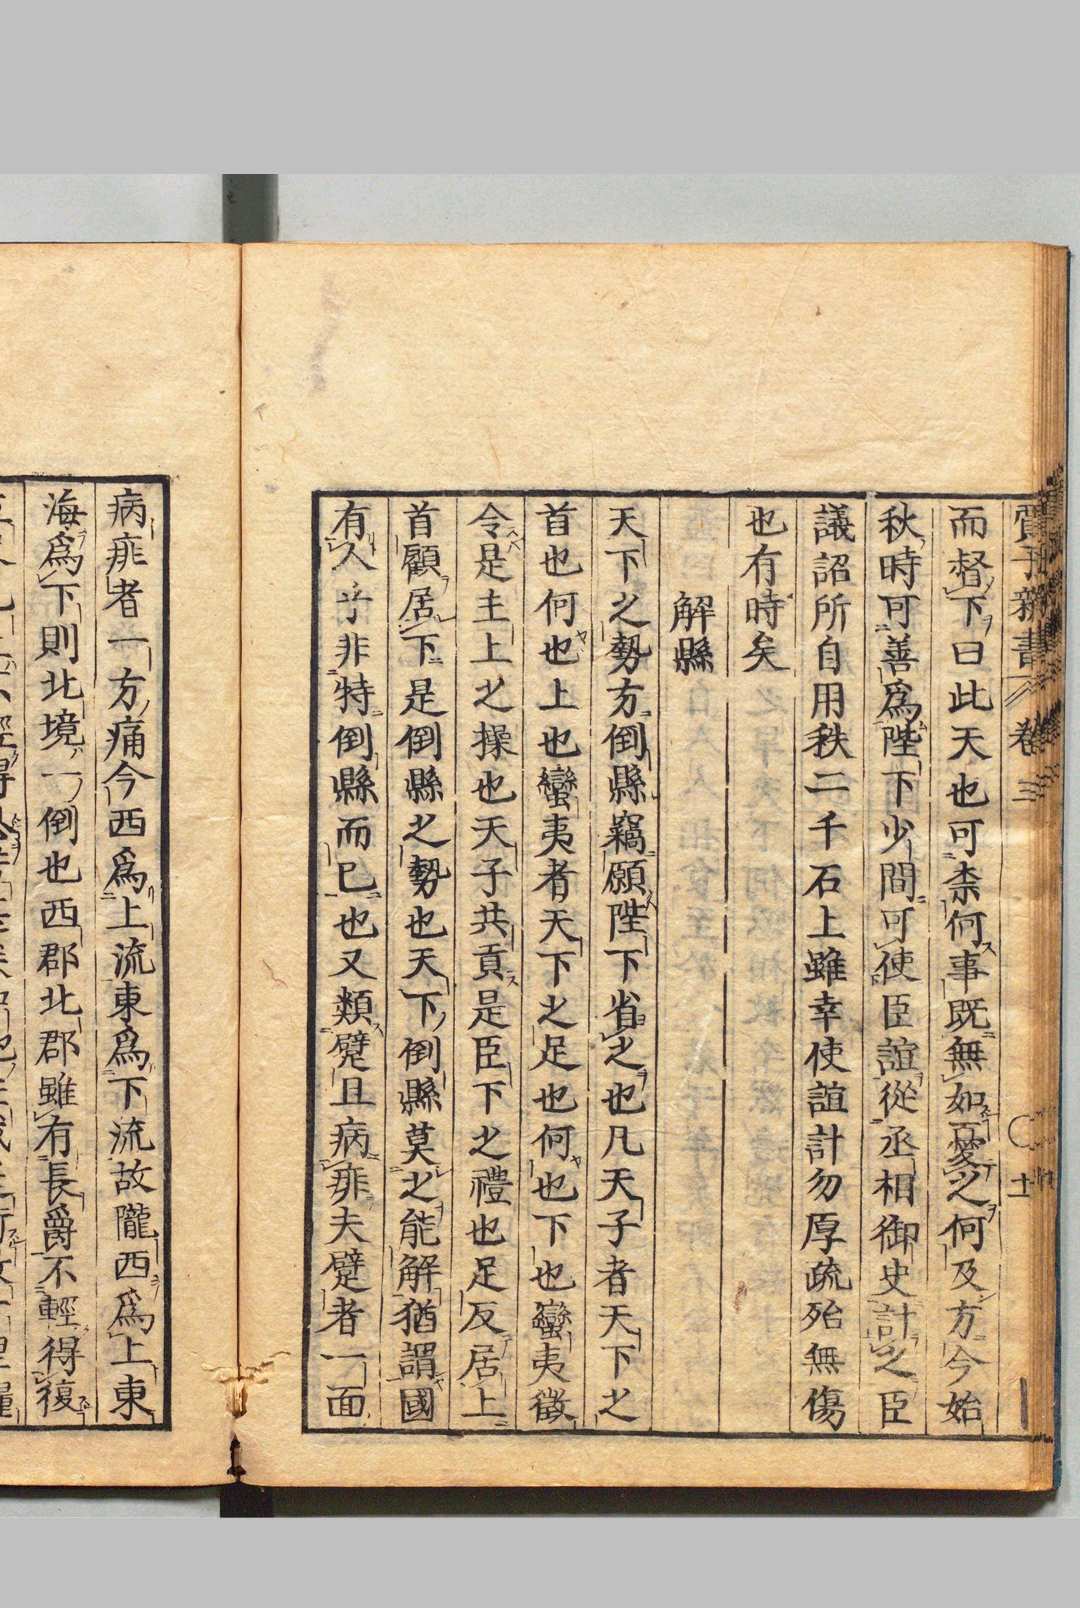 賈子新書 卷三
而督下曰此天也可柰何事既無如憂之何及方今始
秋時可善爲陛下少間可使臣誼從丞相御史計之臣
議詔所自用秩二千石上雖幸使誼計勿厚疏殆無傷
也有時矣
解縣
天下之勢方倒縣竊願陛下省之也凡天子者天下之
首也何也上也蠻夷者天下之足也何也下也蠻夷徵
令是主上之操也天子共貢是臣下之禮也足反居上
首顧居下是倒縣之勢也天下倒縣莫之能解猶謂國
有人乎非特倒縣而已也又類躄且病痱夫躄者一面
病痱者一方痛今西爲上流東爲下流故隴西爲上東
海爲下則北境一倒也西郡北郡雖有長爵不輕得復